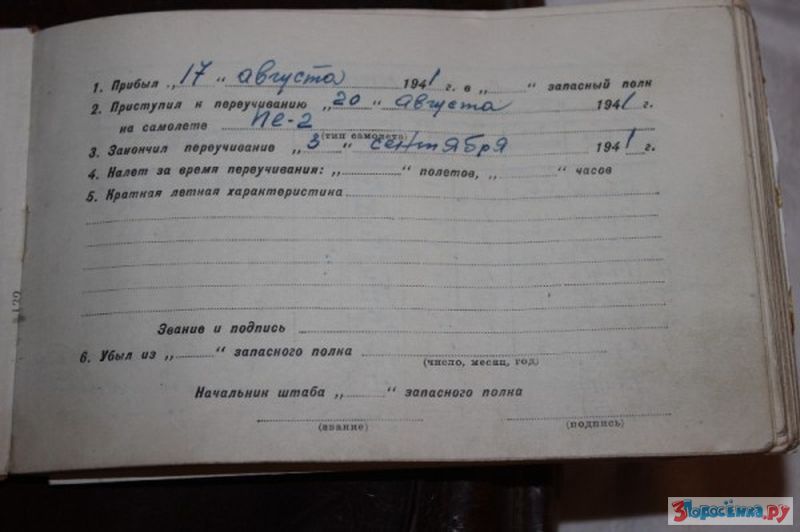 1. Прибыл „17“ августа 1941 г. в „ “ запасный полк
2. Приступил к переучиванию „20“ августа 1941 г.
на самолете Пе-2
(тип самолета)
3. Закончил переучивание „3“ сентября 1941 г.
4. Налет за время переучивания: „ “ полетов, „ “ часов
5. Краткая летная характеристика
Звание и подпись
6. Убыл из „ “ запасного полка
(число, месяц, год)
Начальник штаба „ “ запасного полка
(звание) (подпись)
3Поросёнка.ру